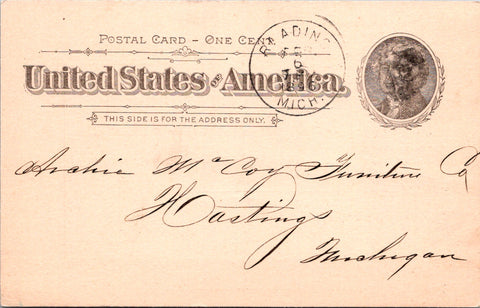 POSTAL CARD – ONE CENT.
United States of America.
THIS SIDE IS FOR THE ADDRESS ONLY.
READING
MICH.
Archie McCoy Furniture Co
Hastings
Michigan